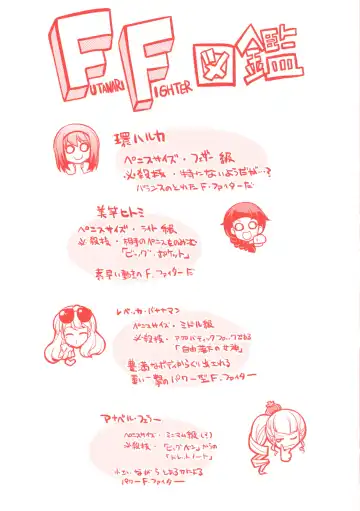 FUTANARI FIGHTER 図鑑
環ハルカ
ペニスサイズ・フェザー級
必殺技・特にないようだが…?
バランスのとれたF・ファイターだ
美竿ヒトミ
ペニスサイズ・ライト級
必殺技・相手のペニスをのみこむ
「ビッグ・ポケット」
素早い動きのF・ファイターだ
レベッカ・バナナマン
ペニスサイズ・ミドル級
必殺技・アクロバティックファックである
「自由落下の女神」
豊満なボディからくり出される
重い一撃のパワー型F・ファイター
アナベル・フェラー
ペニスサイズ・ミニマム級(?)
必殺技・
小さいながら
パワーF・ファイター